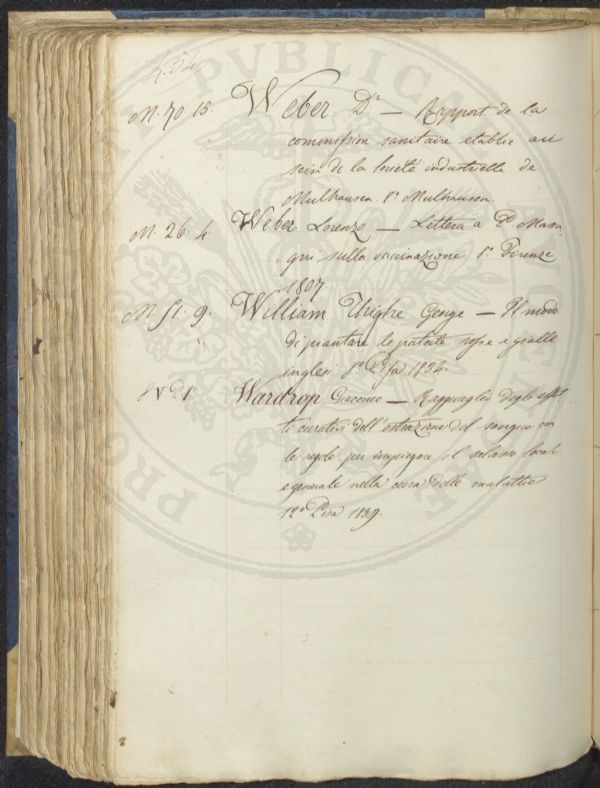 M. 70. 15. Weber Dr — Rapport de la
commission sanitaire etablie au
sein de la Société industrielle de
Mulhausen. 8° Mulhausen.
M. 26. 4. Weber Lorenzo — Lettera a
sulla vaccinazione 8° Firenze
1807
M. 51. 9. William George — Il modo
di piantare le patate rosse e gialle
inglesi 8° Pisa 1834.
Wardrop Giacomo — Ragguaglio degli effet
ti curativi dell'estrazione del sangue con
le regole per impiegare il salasso locale
e generale nella cura delle malattie
12° Pisa 1839.